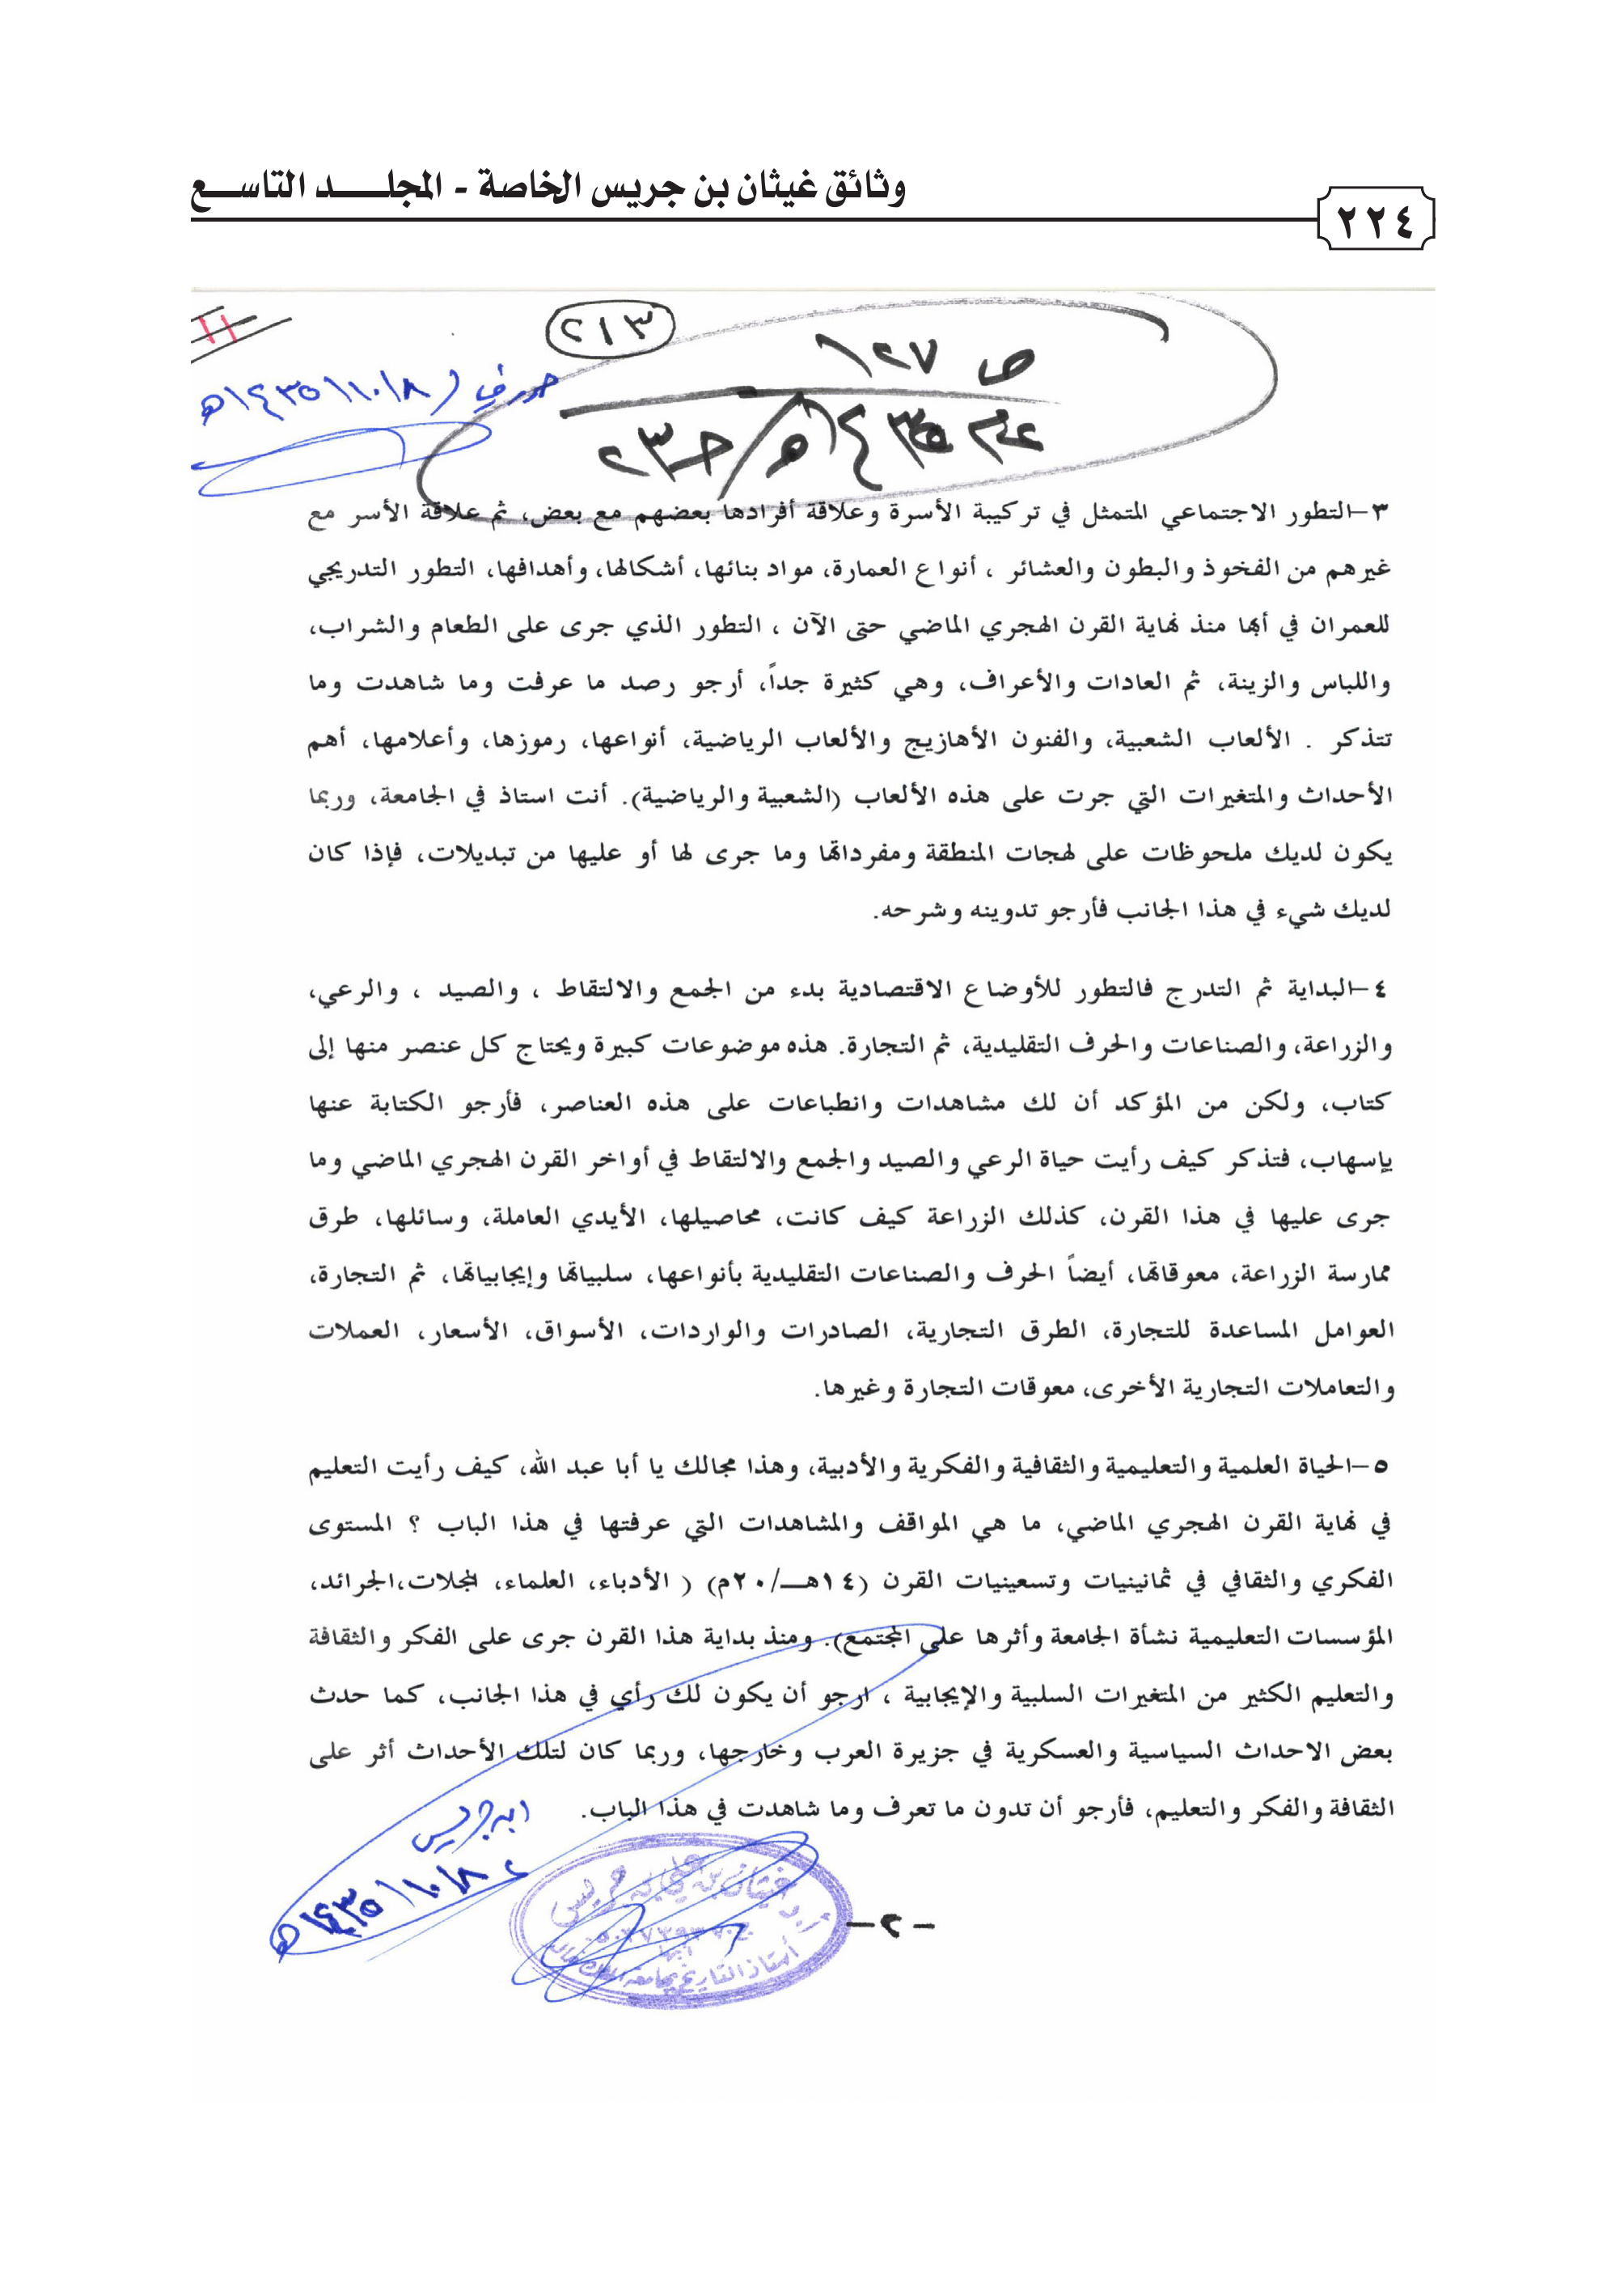 وثائق غيثان بن جريس الخاصة - المجلـــــد التاســـع
٢٢٤
٢١٣
ص ١٢٧
١٤٣٥هـ / حـ ٢٣
حرر في ١٤٣٥/١٠/٨هـ
٣–التطور الاجتماعي المتمثل في تركيبة الأسرة وعلاقة أفرادها بعضهم مع بعض، ثم علاقة الأسر مع
غيرهم من الفخوذ والبطون والعشائر ، أنواع العمارة، مواد بنائها، أشكالها، وأهدافها، التطور التدريجي
للعمران في أبها منذ نهاية القرن الهجري الماضي حتى الآن ، التطور الذي جرى على الطعام والشراب،
واللباس والزينة، ثم العادات والأعراف، وهي كثيرة جداً، أرجو رصد ما عرفت وما شاهدت وما
تتذكر . الألعاب الشعبية، والفنون الأهازيج والألعاب الرياضية، أنواعها، رموزها، وأعلامها، أهم
الأحداث والمتغيرات التي جرت على هذه الألعاب (الشعبية والرياضية). أنت استاذ في الجامعة، وربما
يكون لديك ملحوظات على لهجات المنطقة ومفرداتها وما جرى لها أو عليها من تبديلات، فإذا كان
لديك شيء في هذا الجانب فأرجو تدوينه وشرحه.
٤–البداية ثم التدرج فالتطور للأوضاع الاقتصادية بدء من الجمع والالتقاط ، والصيد ، والرعي،
والزراعة، والصناعات والحرف التقليدية، ثم التجارة. هذه موضوعات كبيرة ويحتاج كل عنصر منها إلى
كتاب، ولكن من المؤكد أن لك مشاهدات وانطباعات على هذه العناصر، فأرجو الكتابة عنها
بإسهاب، فتذكر كيف رأيت حياة الرعي والصيد والجمع والالتقاط في أواخر القرن الهجري الماضي وما
جرى عليها في هذا القرن، كذلك الزراعة كيف كانت، محاصيلها، الأيدي العاملة، وسائلها، طرق
ممارسة الزراعة، معوقاتها، أيضاً الحرف والصناعات التقليدية بأنواعها، سلبياتها وإيجابياتها، ثم التجارة،
العوامل المساعدة للتجارة، الطرق التجارية، الصادرات والواردات، الأسواق، الأسعار، العملات
والتعاملات التجارية الأخرى، معوقات التجارة وغيرها.
٥–الحياة العلمية والتعليمية والثقافية والفكرية والأدبية، وهذا مجالك يا أبا عبد الله، كيف رأيت التعليم
في نهاية القرن الهجري الماضي، ما هي المواقف والمشاهدات التي عرفتها في هذا الباب ؟ المستوى
الفكري والثقافي في ثمانينيات وتسعينيات القرن (١٤هــ/٢٠م) ( الأدباء، العلماء، المجلات،الجرائد،
المؤسسات التعليمية نشأة الجامعة وأثرها على المجتمع). ومنذ بداية هذا القرن جرى على الفكر والثقافة
والتعليم الكثير من المتغيرات السلبية والإيجابية ، ارجو أن يكون لك رأي في هذا الجانب، كما حدث
بعض الاحداث السياسية والعسكرية في جزيرة العرب وخارجها، وربما كان لتلك الأحداث أثر على
الثقافة والفكر والتعليم، فأرجو أن تدون ما تعرف وما شاهدت في هذا الباب.
ابن جريس
١٤٣٥/١٠/٨هـ
أ.د. غيثان بن علي بن جريس
أبها
أستاذ التاريخ بجامعة الملك خالد
– ٢ –